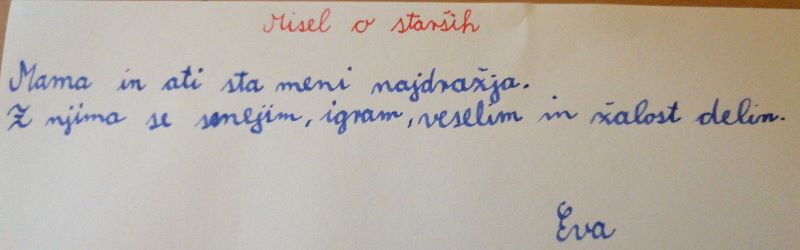 Misel o starših
Mama in ati sta meni najdražja.
Z njima se smejim, igram, veselim in žalost delim.
Eva